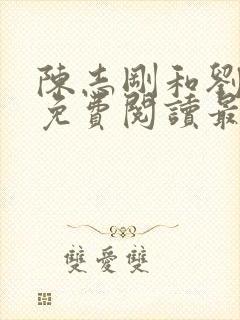 陳志剛和劉
免費閱讀最
雙愛雙